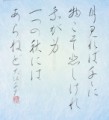 月見れば千々に
物こそ悲しけれ
わが身
一つの秋には
あらねど